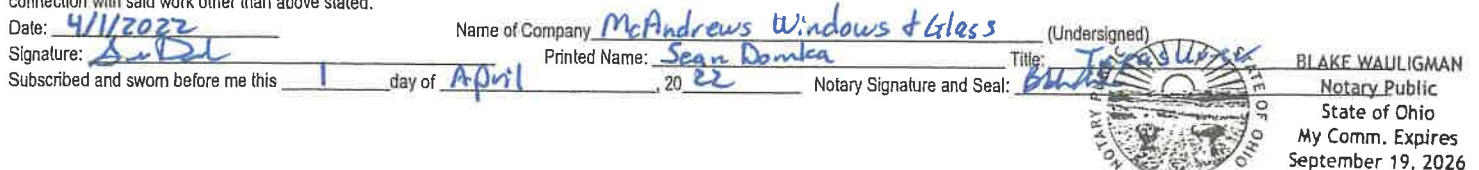 connection with said work other than above stated.
Date: 4/1/2022 Name of Company McAndrews Windows & Glass (Undersigned)
Signature: Printed Name: Sean Domka Title: Treasurer
Subscribed and sworn before me this 1 day of April, 20 22 Notary Signature and Seal:
NOTARY PUBLIC STATE OF OHIO
BLAKE WAULIGMAN
Notary Public
State of Ohio
My Comm. Expires
September 19, 2026